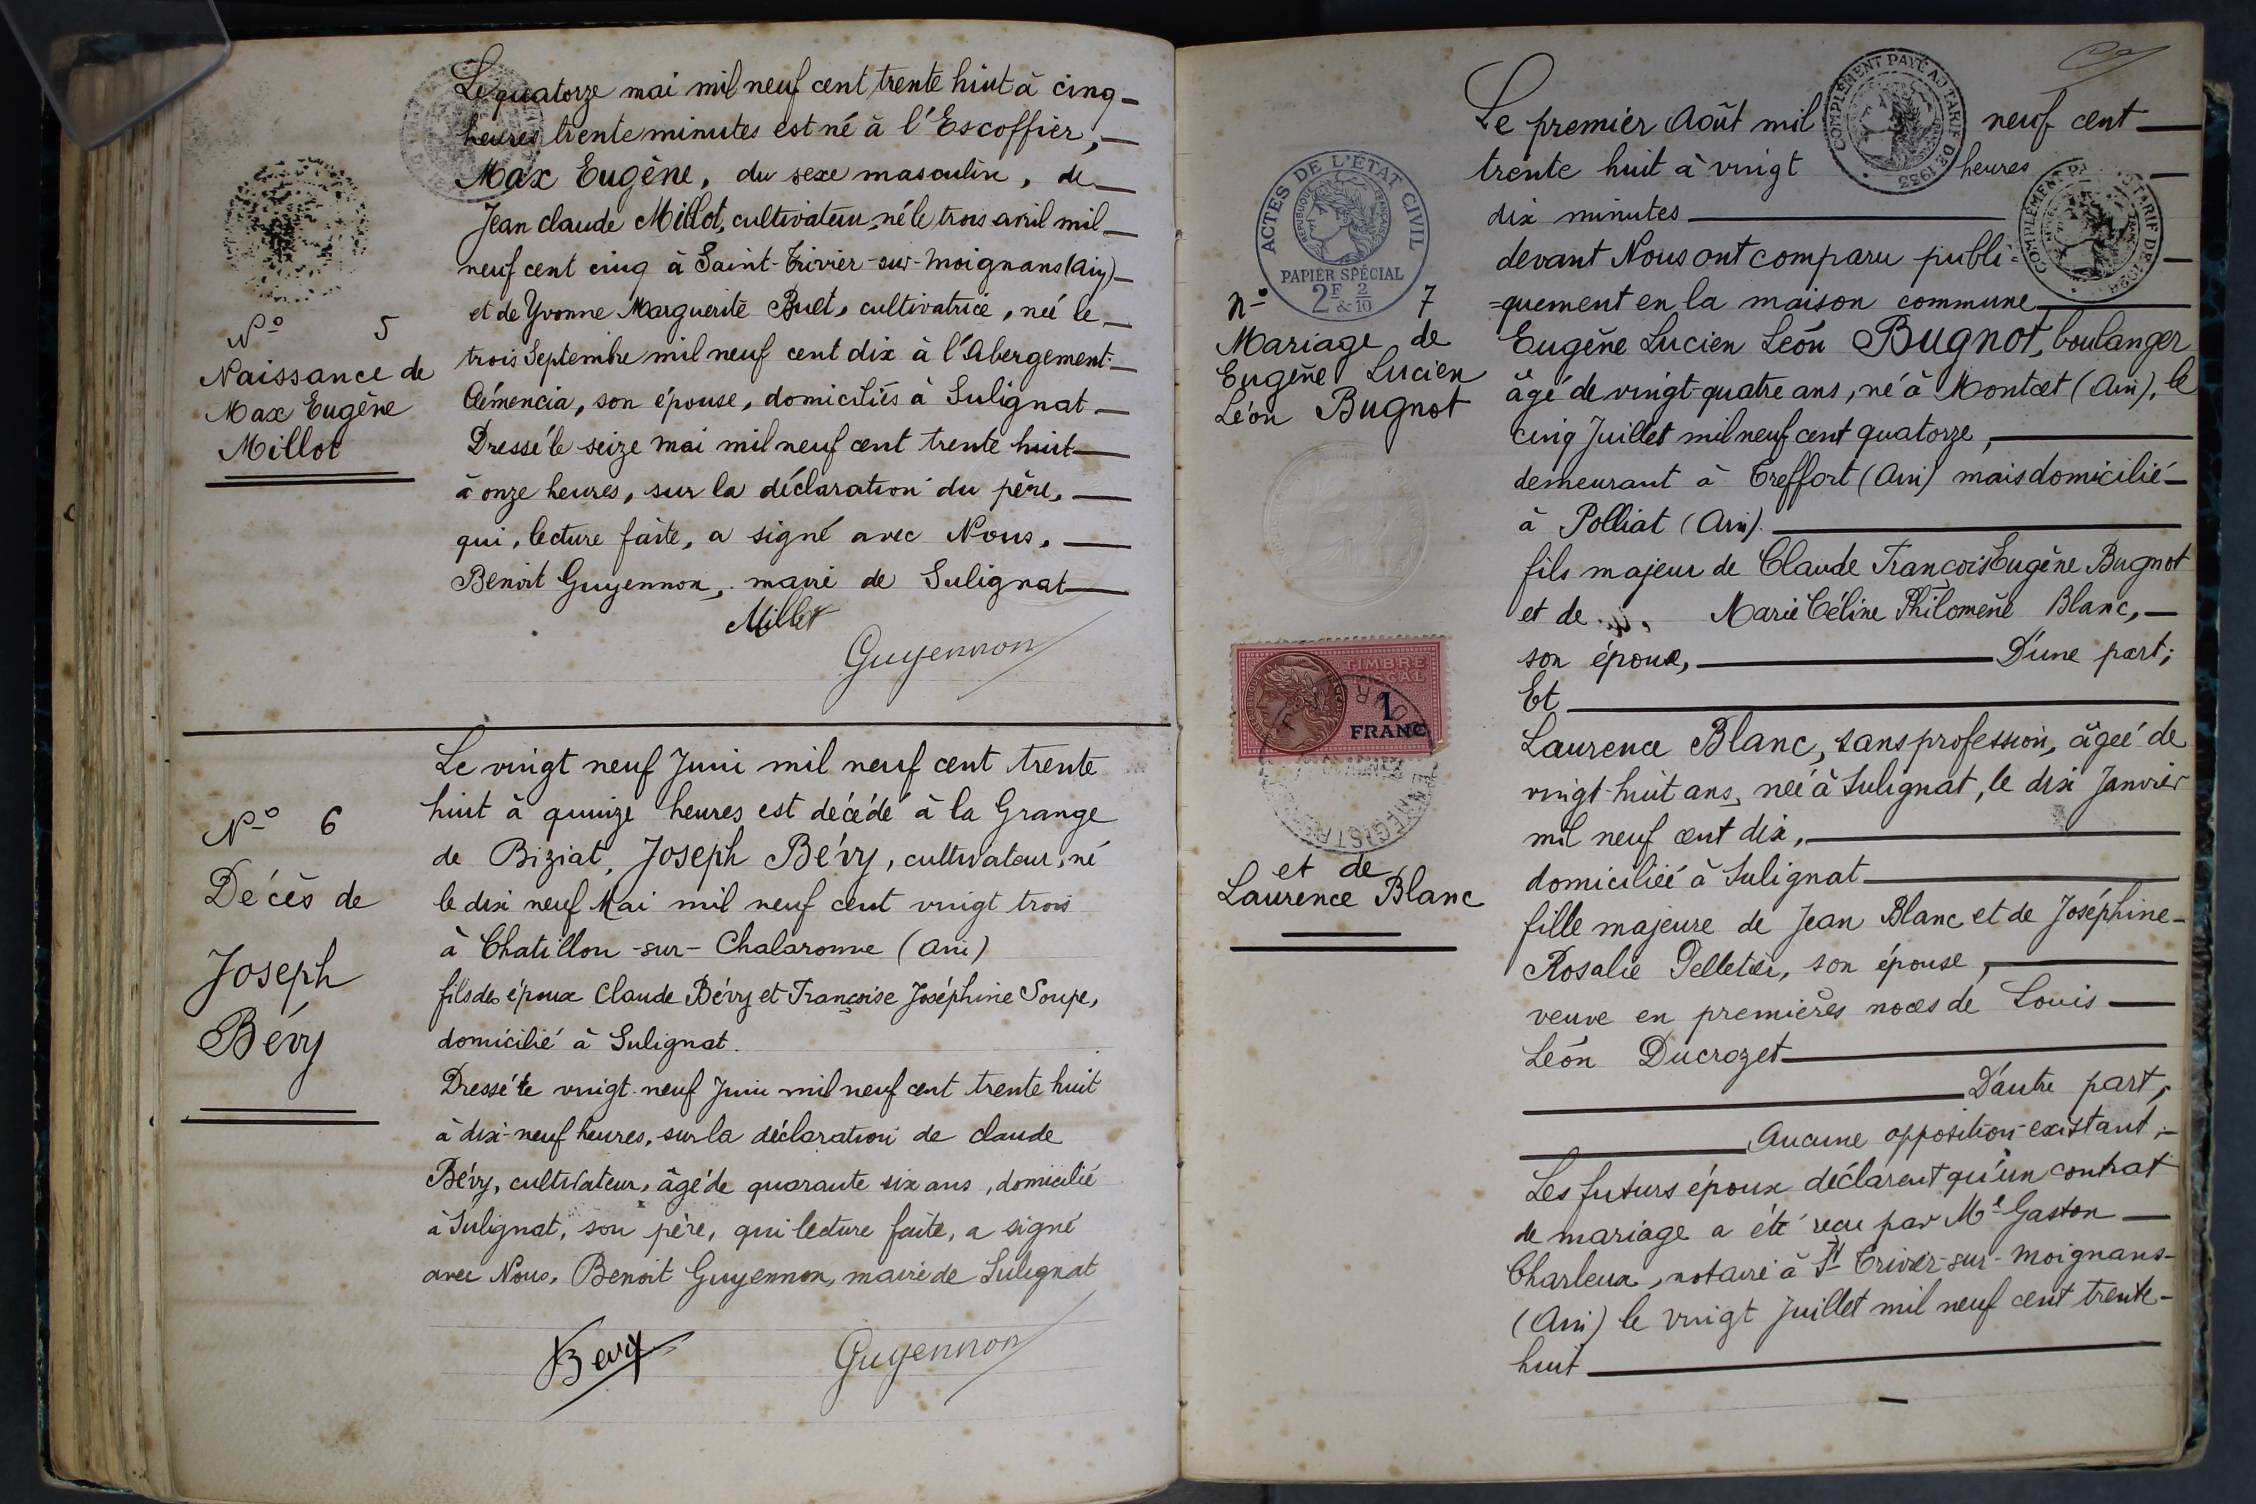 Le quatorze mai mil neuf cent trente huit à cinq
heures trente minutes est né à l'Escoffier,
Max Eugène, du sexe masculin, de
Jean Claude Millot, cultivateur, né le trois avril mil
neuf cent cinq à Saint-Trivier-sur-Moignans (Ain)
et de Yvonne Marguerite Buet, cultivatrice, née le
trois Septembre mil neuf cent dix à l'Abergement-
Clémencia, son épouse, domiciliés à Sulignat.
Dressé le seize mai mil neuf cent trente huit
à onze heures, sur la déclaration du père,
qui, lecture faite, a signé avec Nous,
Benoit Guyennon, maire de Sulignat
Millot
Guyennon
N° 5
Naissance de
Max Eugène
Millot
Le vingt neuf Juin mil neuf cent trente
huit à quinze heures est décédé à la Grange
de Biziat, Joseph Bévy, cultivateur, né
le dix neuf Mai mil neuf cent vingt trois
à Chatillon-sur-Chalaronne (Ain)
fils des époux Claude Bévy et Françoise Joséphine Soupe,
domicilié à Sulignat.
Dressé le vingt-neuf Juin mil neuf cent trente huit
à dix-neuf heures, sur la déclaration de Claude
Bévy, cultivateur, âgé de quarante six ans, domicilié
à Sulignat, son père, qui lecture faite, a signé
avec Nous, Benoit Guyennon, maire de Sulignat
Bevy
Guyennon
N° 6
Décès de
Joseph
Bévy
Le premier Août mil neuf cent
trente huit à vingt heures
dix minutes
devant Nous ont comparu publi=
=quement en la maison commune
Eugène Lucien Léon Bugnot, boulanger
âgé de vingt-quatre ans, né à Montcet (Ain), le
cinq Juillet mil neuf cent quatorze,
demeurant à Treffort (Ain) mais domicilié
à Polliat (Ain).
fils majeur de Claude François Eugène Bugnot
et de Marie Céline Philomène Blanc,
son épouse, D'une part;
Et
Laurence Blanc, sans profession, âgée de
vingt-huit ans, née à Sulignat, le dix Janvier
mil neuf cent dix,
domiciliée à Sulignat
fille majeure de Jean Blanc et de Joséphine-
Rosalie Pelletier, son épouse,
veuve en premières noces de Louis
Léon Ducrozet
D'autre part,
Aucune opposition existant,
Les futurs époux déclarent qu'un contrat
de mariage a été reçu par Me Gaston
Charleux, notaire à St Trivier-sur-Moignans-
(Ain) le vingt Juillet mil neuf cent trente-
huit
COMPLÉMENT PAYÉ AU TARIF DE 1933
ACTES DE L'ÉTAT CIVIL
RÉPUBLIQUE FRANÇAISE
PAPIER SPÉCIAL
2F & 2/10
n° 7
Mariage de
Eugène Lucien
Léon Bugnot
TIMBRE
FISCAL
1
FRANC
et de
Laurence Blanc